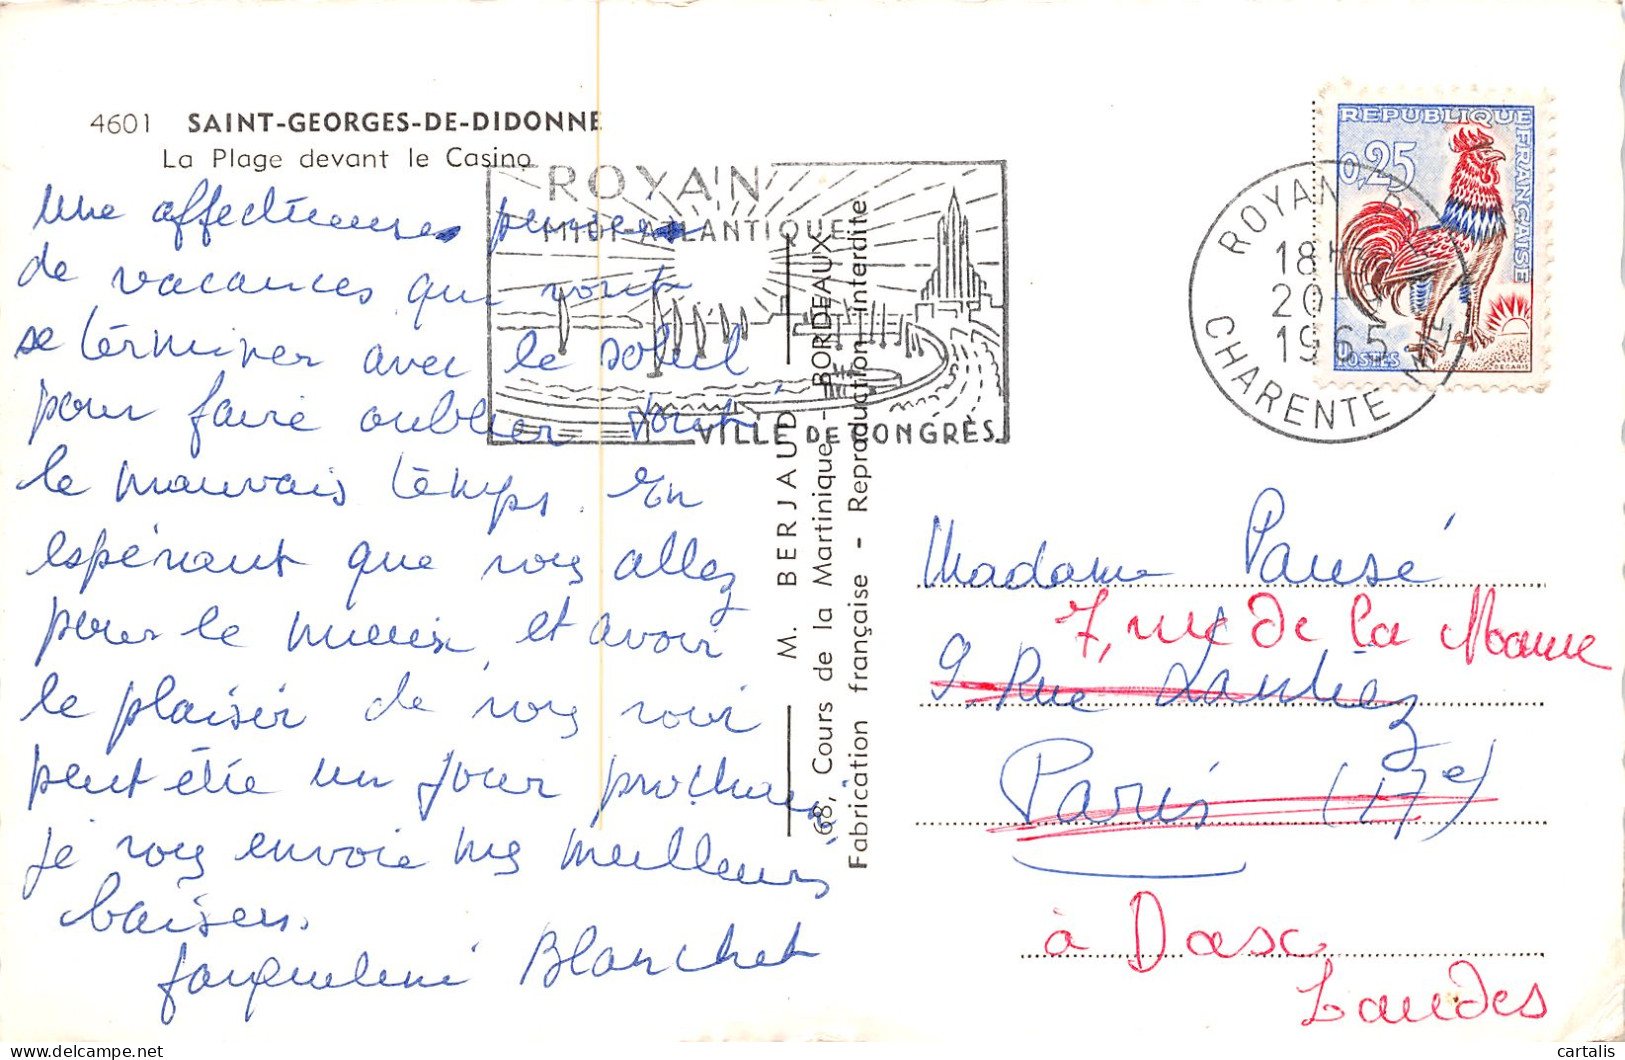 4601 SAINT-GEORGES-DE-DIDONNE
La Plage devant le Casino
Une affectueuse pensée
de vacances qui vont
se terminer avec le soleil
pour faire oublier
le mauvais temps. En
espérant que vous allez
pour le mieux, et avoir
le plaisir de vous voir
peut être un jour prochain
je vous envoie mes meilleurs
baisers.
Jacqueline Blanchet
ROYAN
MIDI-ATLANTIQUE
VILLE DE CONGRÈS
M. BERJAUD
68, Cours de la Martinique - BORDEAUX
Fabrication française - Reproduction Interdite
ROYAN
18H
20
1965
CHARENTE
REPUBLIQUE FRANÇAISE
0,25
POSTES
DECARIS
Madame Pausé
7, rue de la Marne
9 Rue
Paris (17e)
à Dax
Landes
cartalis